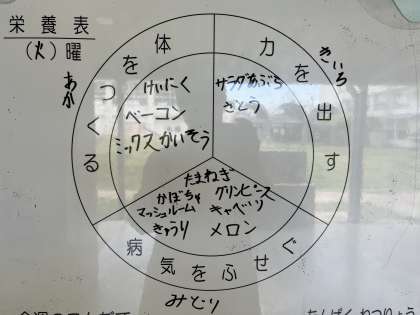 栄養表
(火)曜
あか
体をつくる
けいにく
ベーコン
ミックスかいそう
きいろ
力を出す
サラダあぶら
さとう
たまねぎ
かぼちゃ グリンピース
マッシュルーム キャベツ
きゅうり メロン
病気をふせぐ
みどり
たんぱく